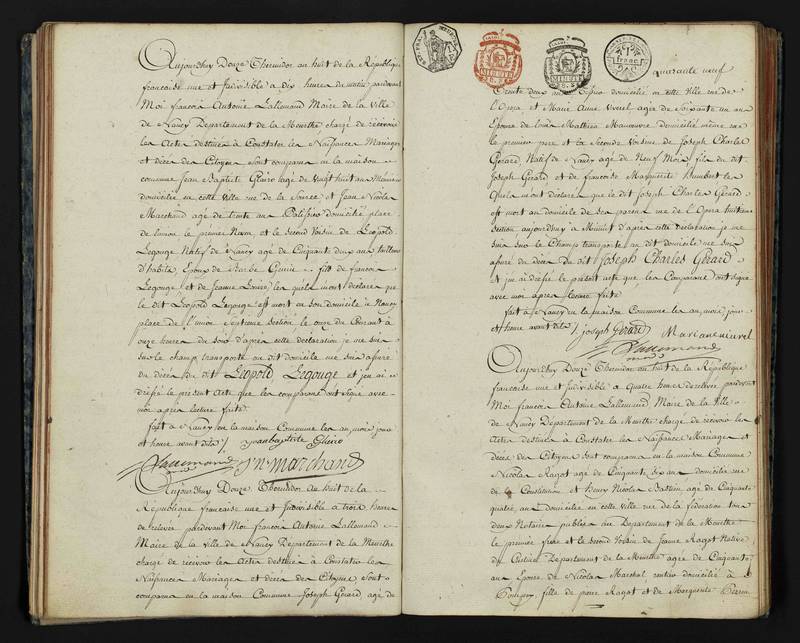 Aujourdhuy Douze Thermidor an huit de la République
francaise une et Indivisible a dix heures du matin pardevant
Moi francois Antoine Lallemand Maire de la Ville
de Nancy Departement de la Meurthe chargé de recevoir
les Actes destinés à Constater les Naissances Mariages
et décès des Citoyens Sont comparus en la maison
commune Jean Baptiste Gléiro agé de vingt huit ans
domicilié en cette ville rue de la Source et Jean Nicolas
Marchand agé de trente ans domicilié place
de lunion le premier et le Second Voisin de Léopold
Legouge Natif de Nancy agé de Cinquante deux ans tailleur
d'habits, Epoux de Barbe fils de francois
Legouge et de Jeanne Louise les quels mont déclaré que
le dit Léopold Legouge est mort en son domicile à Nancy
place de l'union Septieme Section le onze du Courant à
onze heures du soir d'après cette déclaration je me suis
Sur le champ transporté au dit domicile me suis assuré
du décès du dit Léopold Legouge et jen ai
dressé le présent Acte que les comparans ont signé avec
moi apres lecture faite
fait à Nancy en la maison Commune les an mois jour
et heure avant dits Jeanbaptiste Gléiro
Lallemand J N Marchand
Aujourdhuy Douze Thermidor an huit de la
République francaise une et Indivisible a trois heures
de relevée pardevant Moi francois Antoine Lallemand
Maire de la ville de Nancy Departement de la Meurthe
chargé de recevoir les Actes destinés à Constater les
Naissances Mariages et décès des Citoyens Sont
comparus en la maison Commune Joseph Gérard agé de
quarante neuf
Trente deux ans domicilié en cette Ville rue de
l'Opera et Marie Anne agée de Soixante un ans
Epouse de Louis Mathieu domicilié même rue
le premier pere et la Seconde Voisine de Joseph Charles
Gérard Natif de Nancy agé de Neuf Mois fils du dit
Joseph Gérard et de francoise Marguerite Humbert les
Quels mont déclaré que le dit Joseph Charles Gérard
est mort au domicile de ses parens rue de l'Opera huitieme
Section aujourdhuy à Minuit d'après cette déclaration je me
suis sur le Champ transporté au dit domicile me suis
assuré du décès du dit Joseph Charles Gérard
et jen ai dressé le présent acte que les Comparans ont signé
avec moi après lecture faite
fait à Nancy en la maison Commune les an mois jour
et heure avant dits Joseph Gérard
Lallemand
Aujourdhuy Douze Thermidor an huit de la République
francaise une et indivisible a quatre heures de relevée pardevant
Moi francois Antoine Lallemand Maire de la Ville
de Nancy Departement de la Meurthe chargé de recevoir les
Actes destinés à Constater les Naissances Mariages et
décès des Citoyens Sont comparus en la maison Commune
Nicolas Ragot agé de Cinquante six ans domicilié rue
de la Constitution et Henry Nicolas Bastien agé de Cinquante
quatre ans domicilié en cette ville rue de la fédération tous
deux Notaires publics au Departement de la Meurthe
le premier frere et le Second Voisin de Jeanne Ragot Native
de Departement de la Meurthe agée de Cinquante
ans Epouse de Nicolas Marchal rentier domicilié à
fille de Ragot et de Marguerite